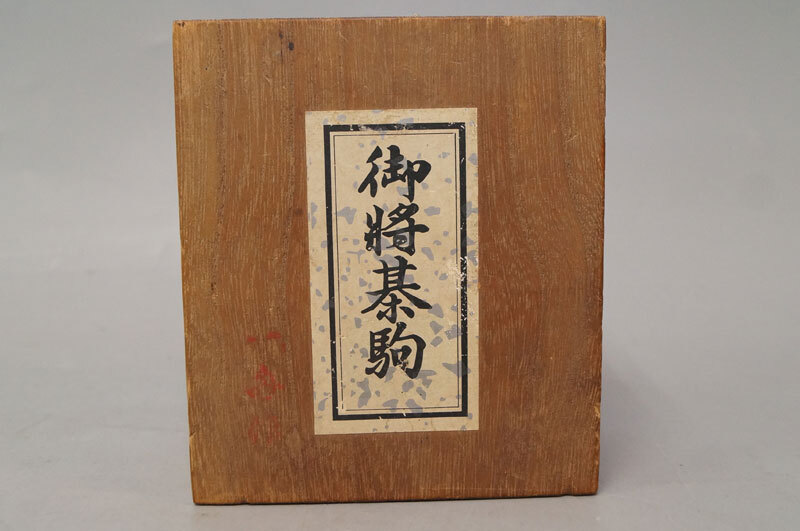 御將棊駒